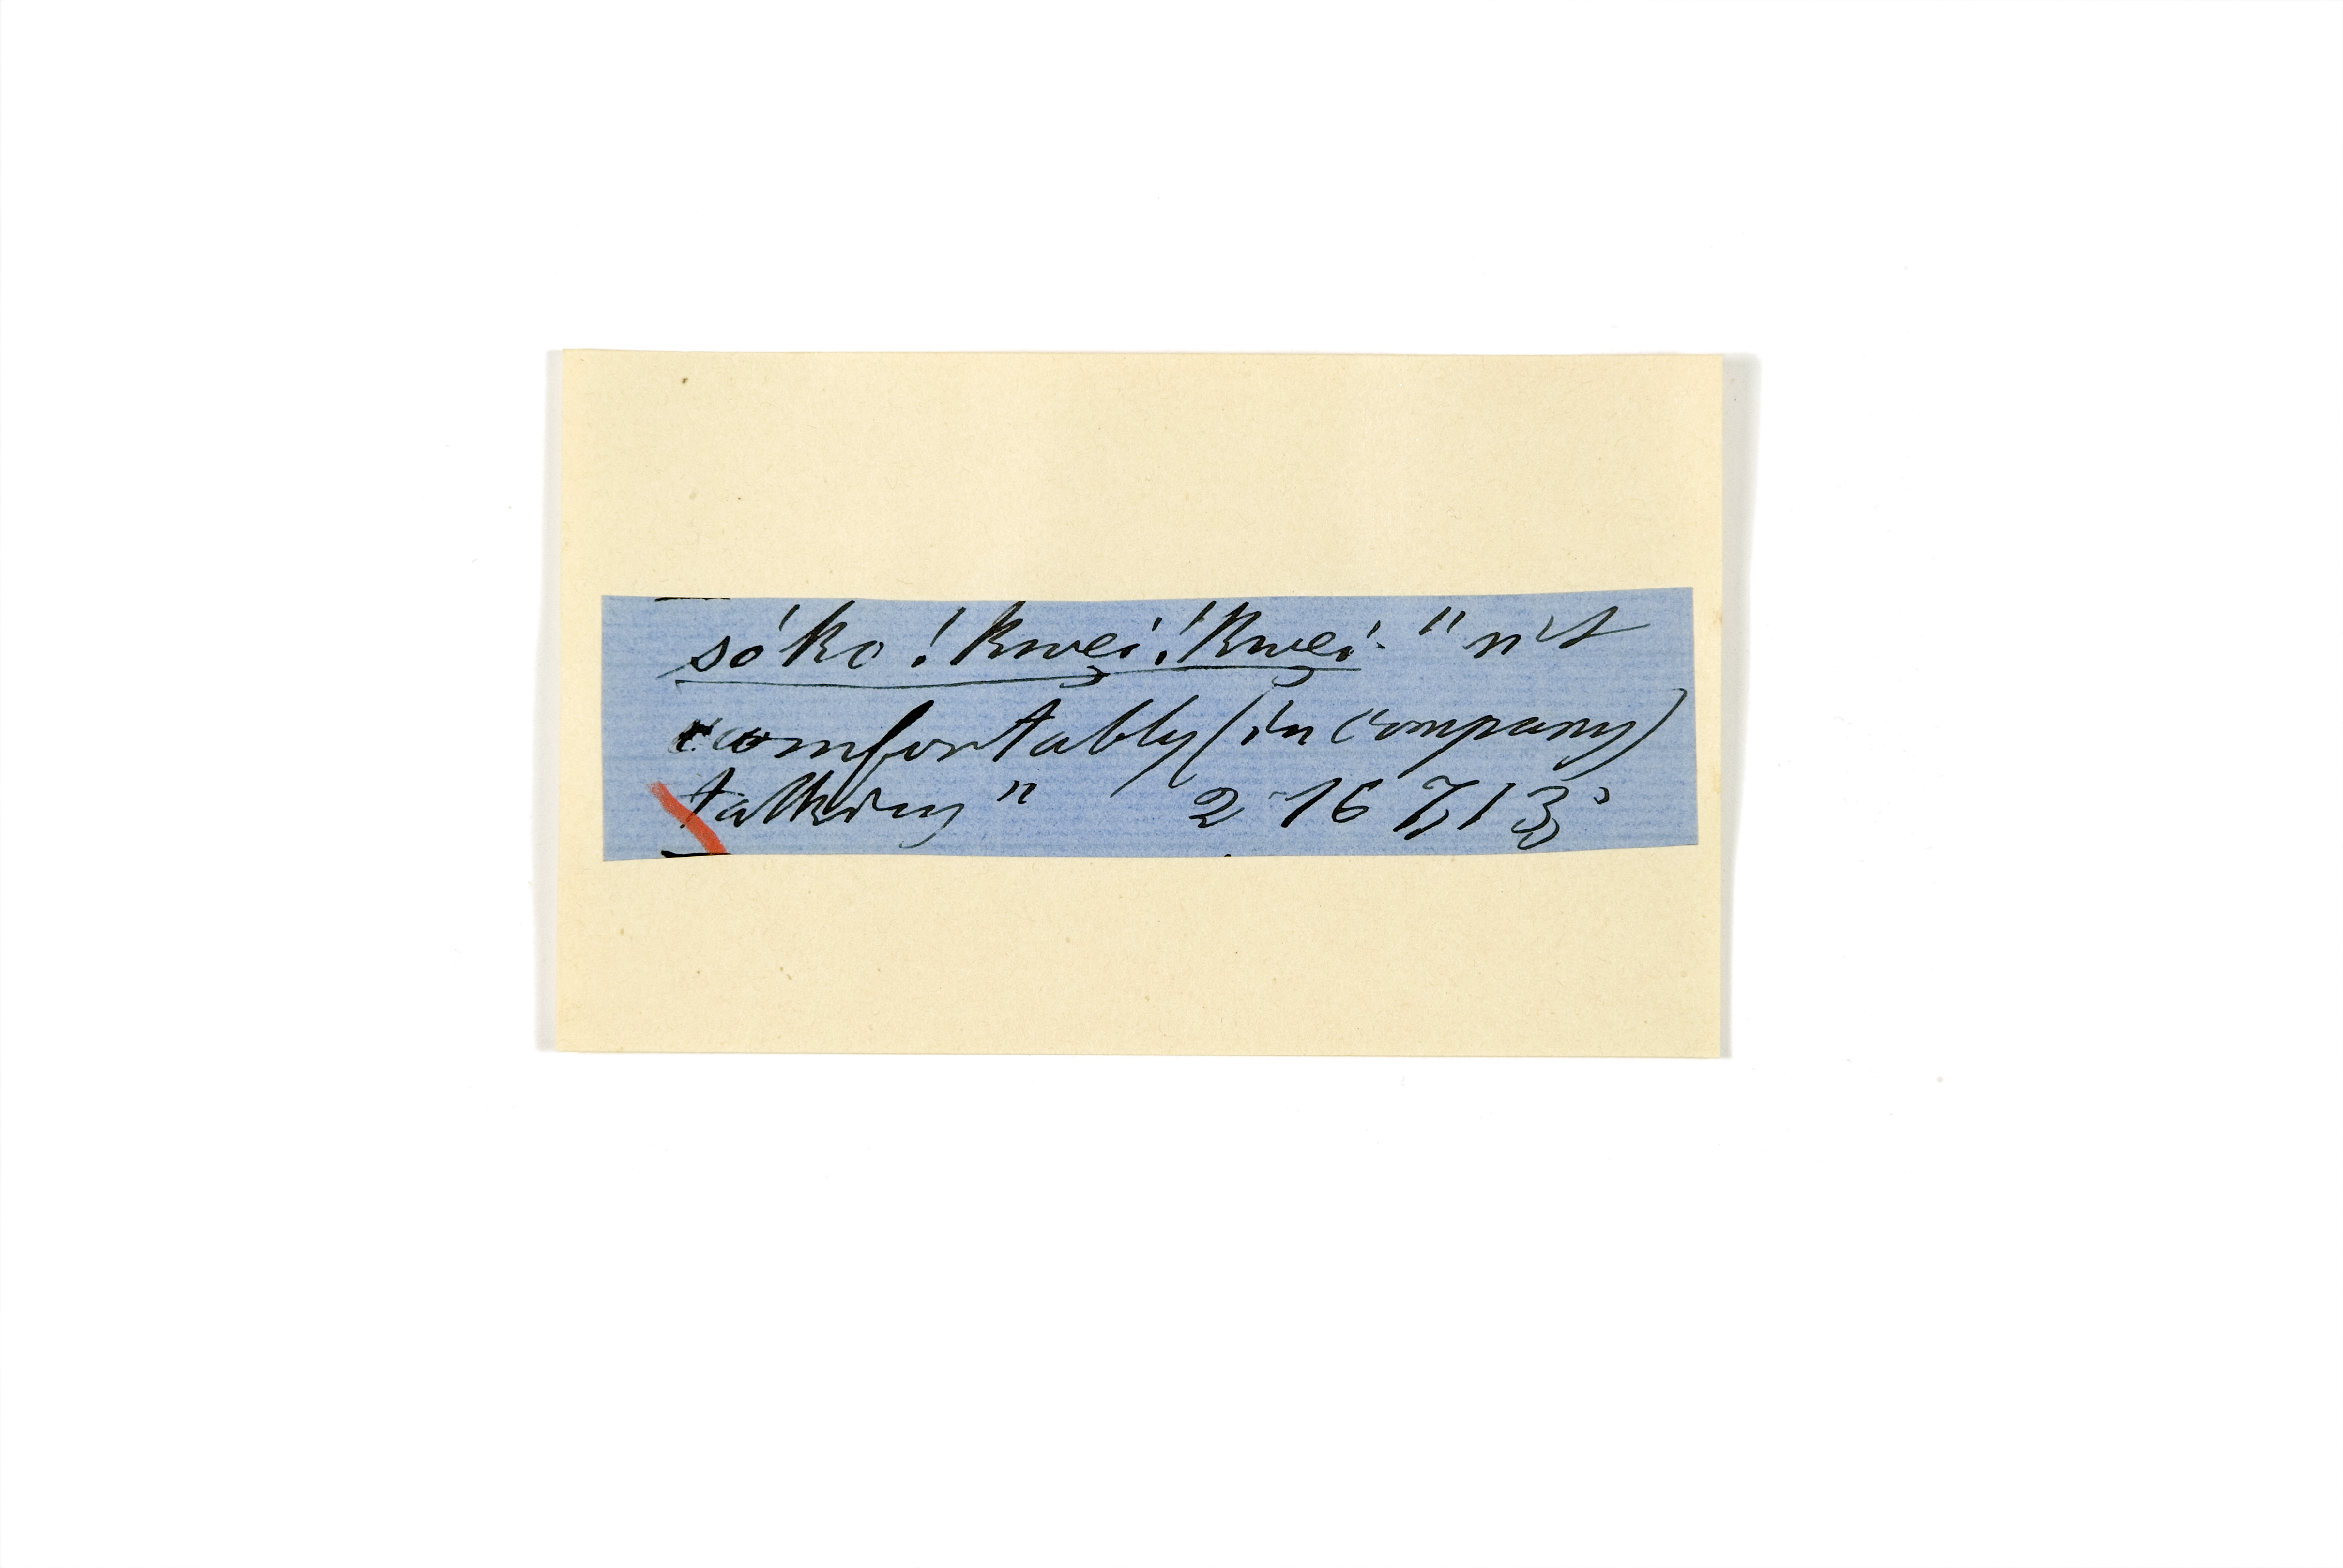 só ko !kwei !kwei. " sit
comfortably (in company)
talking"